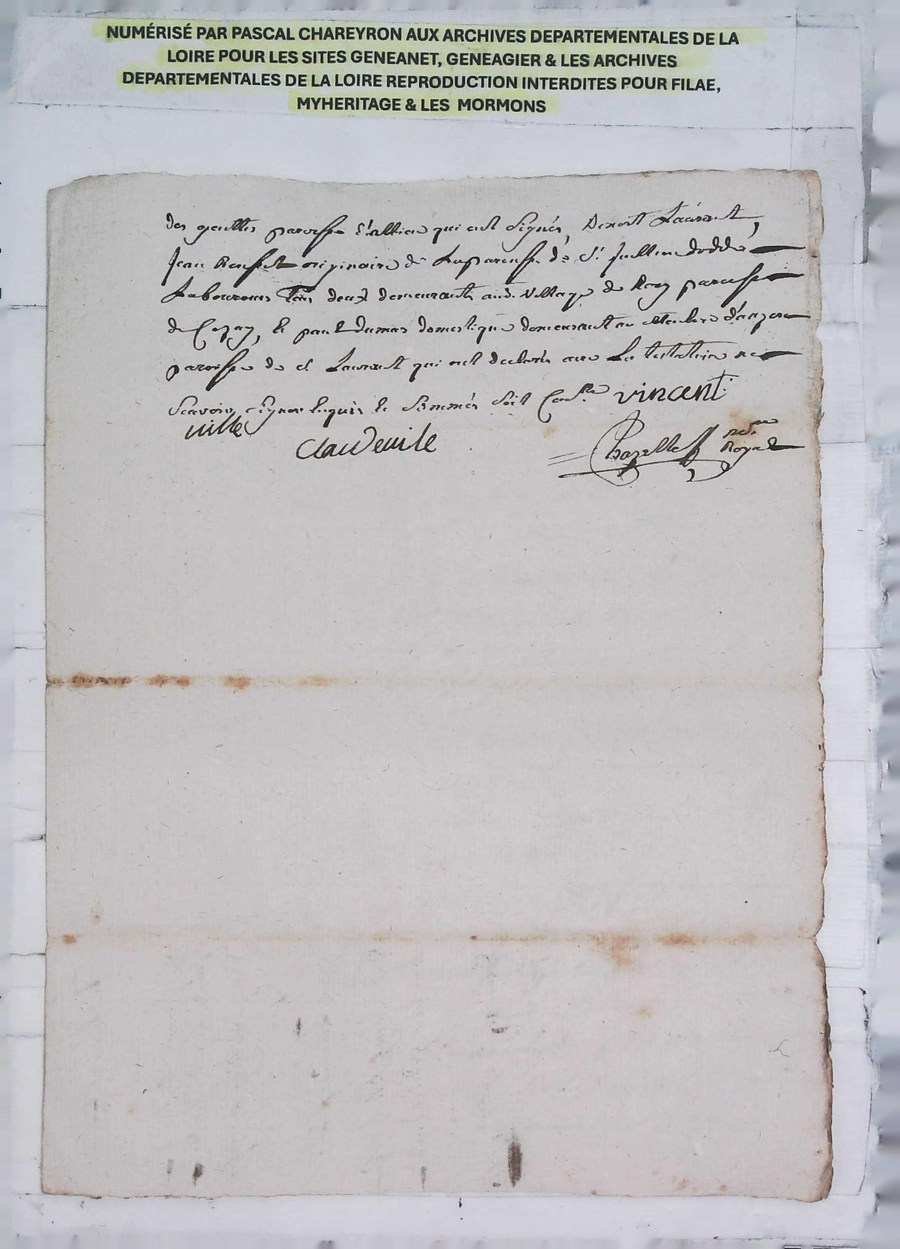 NUMÉRISÉ PAR PASCAL CHAREYRON AUX ARCHIVES DEPARTEMENTALES DE LA
LOIRE POUR LES SITES GENEANET, GENEAGIER & LES ARCHIVES
DEPARTEMENTALES DE LA LOIRE REPRODUCTION INTERDITES POUR FILAE,
MYHERITAGE & LES MORMONS
des paroisse qui ont signés, Benoit Laurent,
Jean originaire de La paroisse de St Jullien
Laboureurs tous deux demeurants aud. village de paroisse
de Cezay, & paul dumas domestique demeurant au
paroisse de st Laurent qui ont declarés avec La testatrice ne
scavoir signer Enquis & sommés soit vincent
ville
Claudeuile
Chazelles no.re Royal